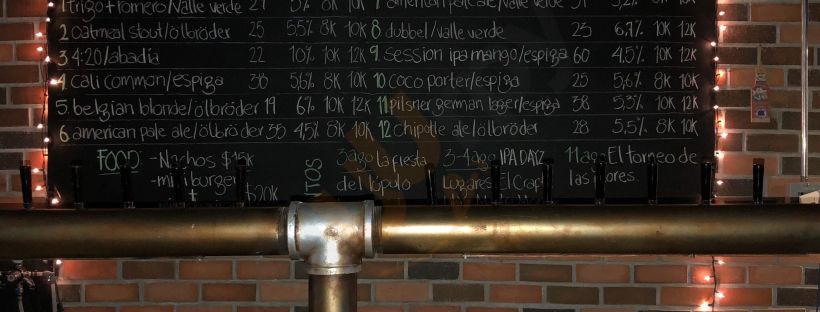 1 trigo+romero/valle verde 27 5% 8K 10K
2 oatmeal stout/ölbröder 25 5,5% 8K 10K
3 4:20/abadia 22 10% 10K 12K
4 cali common/espiga 36 5,6% 8K 10K
5 belgian blonde/ölbröder 19 6% 10K 12K
6 american pale ale/ölbröder 35 4,5% 8K 10K
8 dubbel/valle verde 25 6,7% 10K 12K
9 session ipa mango/espiga 60 4,5% 10K 12K
10 coco porter/espiga 25 5,6% 8K 10K
11 pilsner german lager/espiga 38 5,3% 10K 12K
12 chipotle ale/ölbröder 28 5,5% 8K 10K
FOOD -Nachos $15K
-mini burger
+ $20K
3 ago la fiesta
del lúpulo
3-4 ago IPA DAYZ
Lugares El Craft
11 ago El torneo de
las